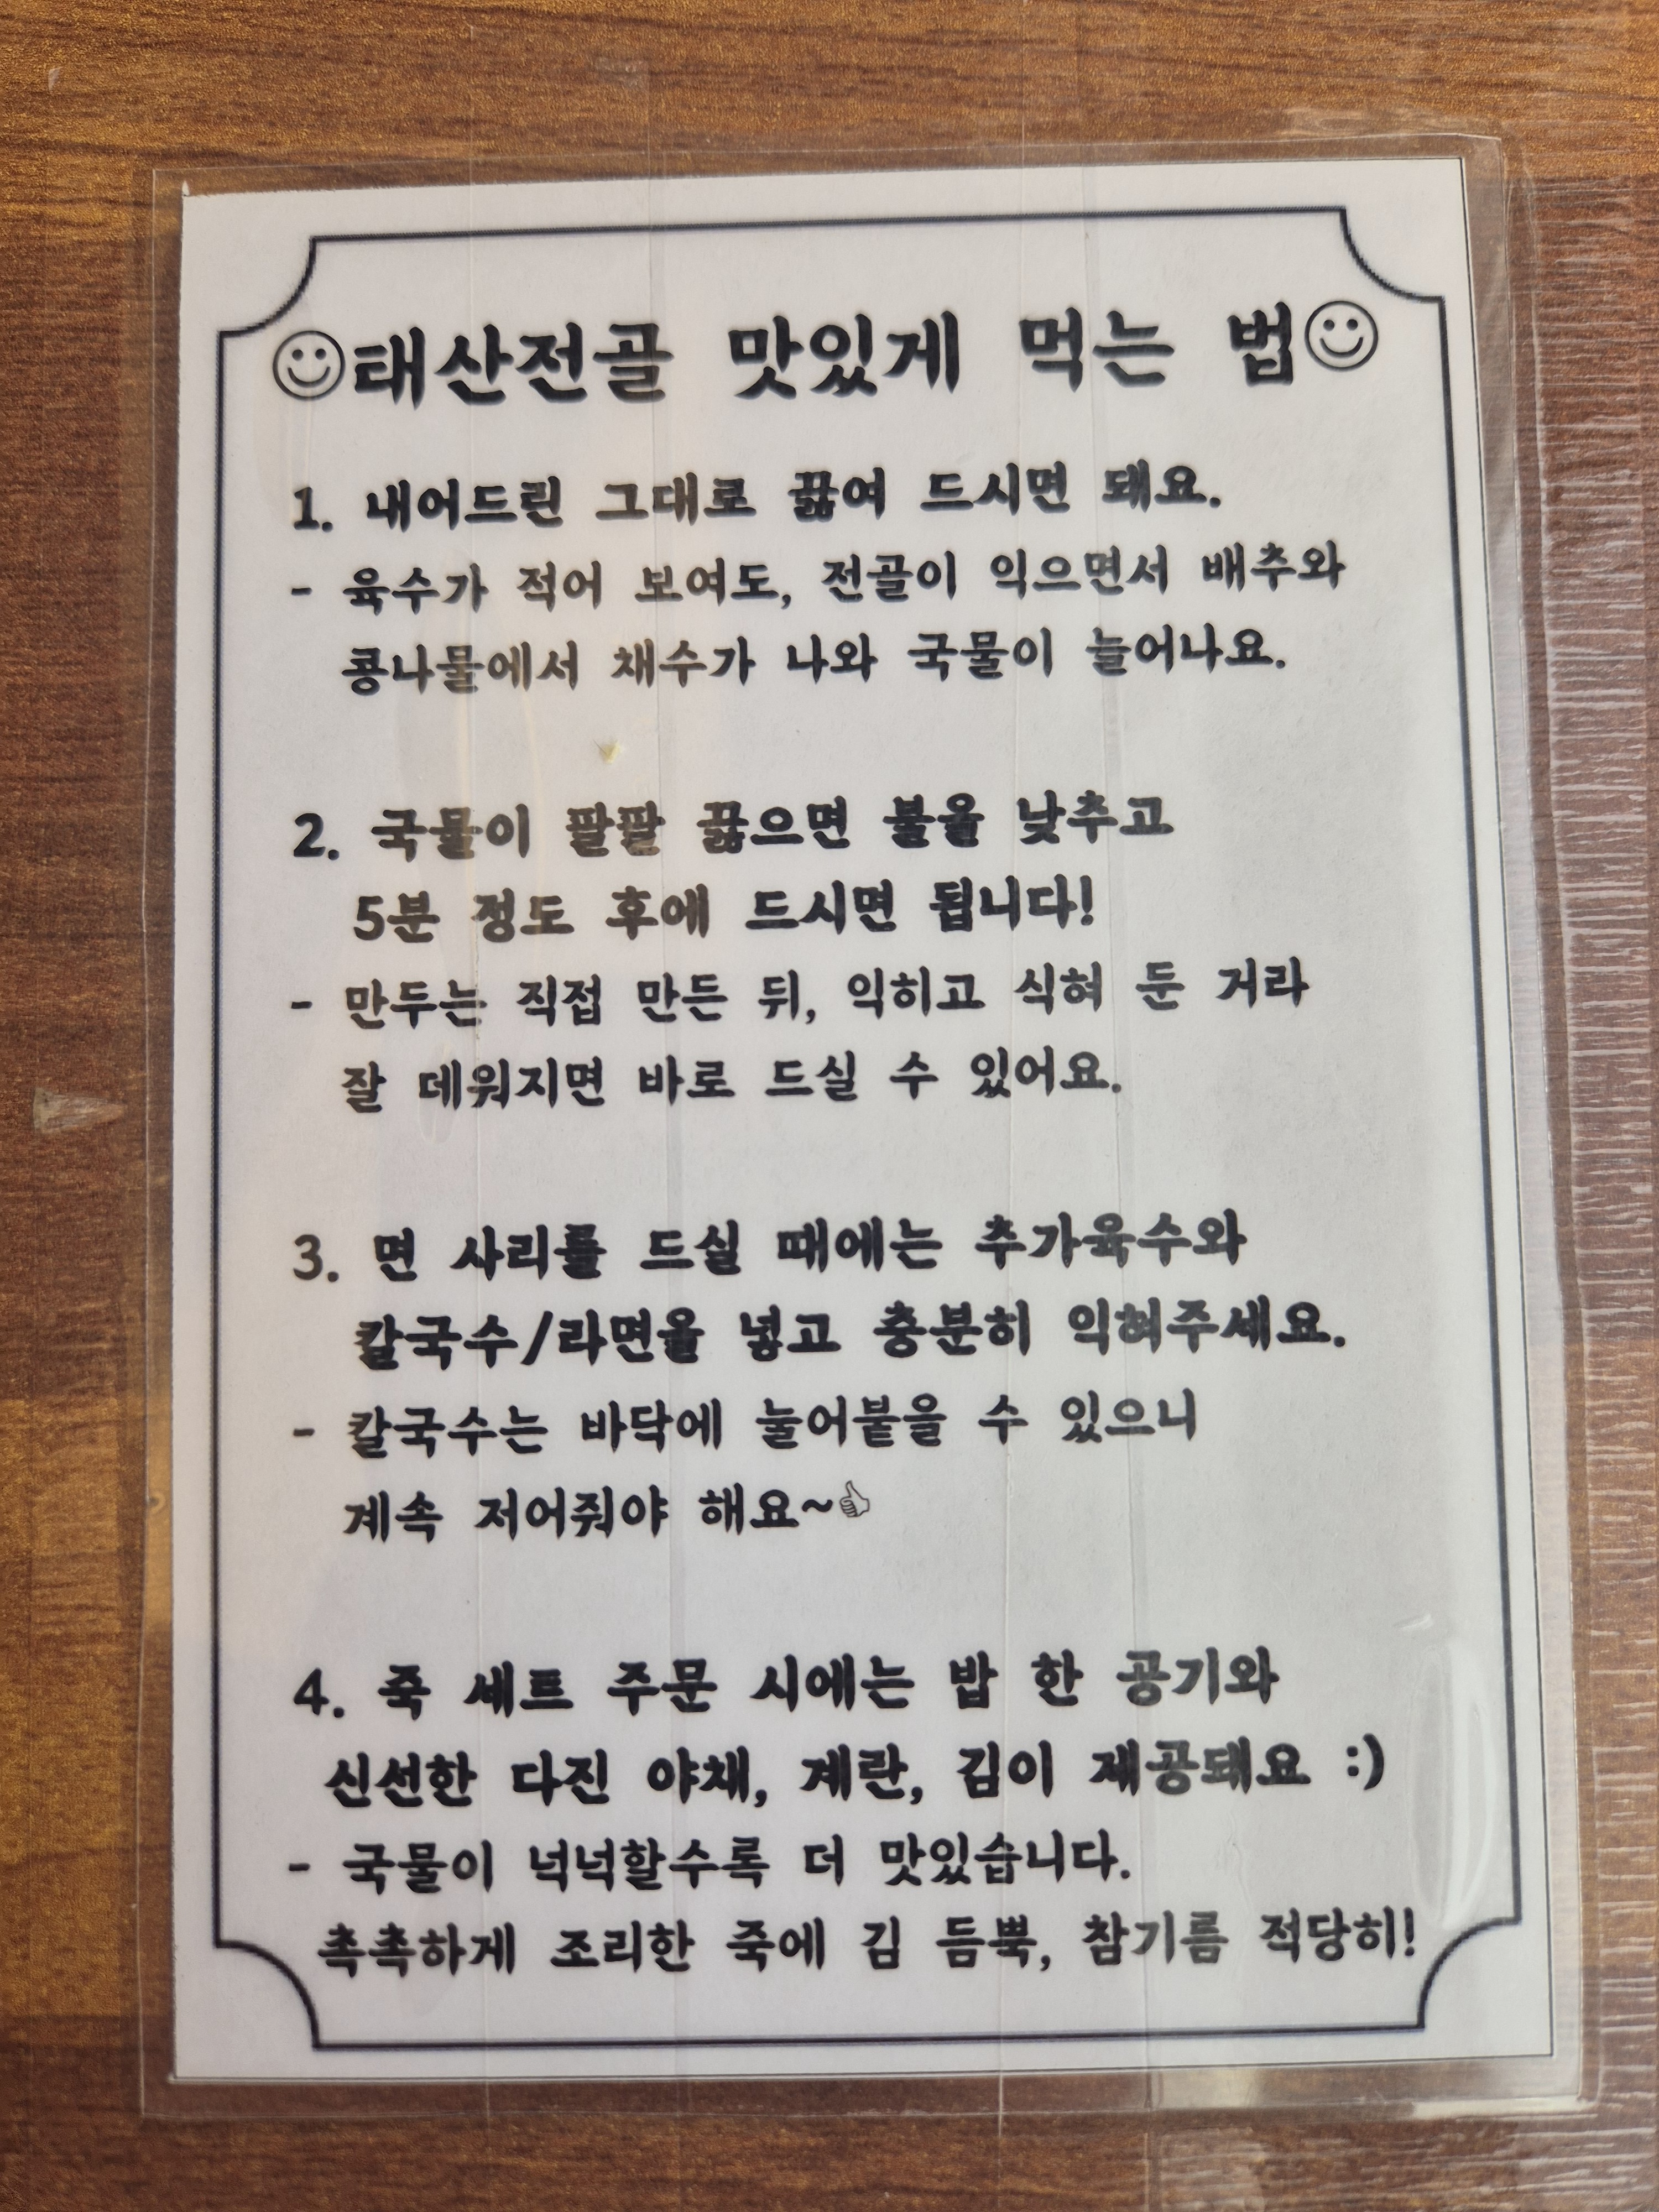 ☺태산전골 맛있게 먹는 법☺
1. 내어드린 그대로 끓여 드시면 돼요.
- 육수가 적어 보여도, 전골이 익으면서 배추와
콩나물에서 채수가 나와 국물이 늘어나요.
2. 국물이 팔팔 끓으면 불을 낮추고
5분 정도 후에 드시면 됩니다!
- 만두는 직접 만든 뒤, 익히고 식혀 둔 거라
잘 데워지면 바로 드실 수 있어요.
3. 면 사리를 드실 때에는 추가육수와
칼국수/라면을 넣고 충분히 익혀주세요.
- 칼국수는 바닥에 눌어붙을 수 있으니
계속 저어줘야 해요~👍
4. 죽 세트 주문 시에는 밥 한 공기와
신선한 다진 야채, 계란, 김이 제공돼요 :)
- 국물이 넉넉할수록 더 맛있습니다.
촉촉하게 조리한 죽에 김 듬뿍, 참기름 적당히!